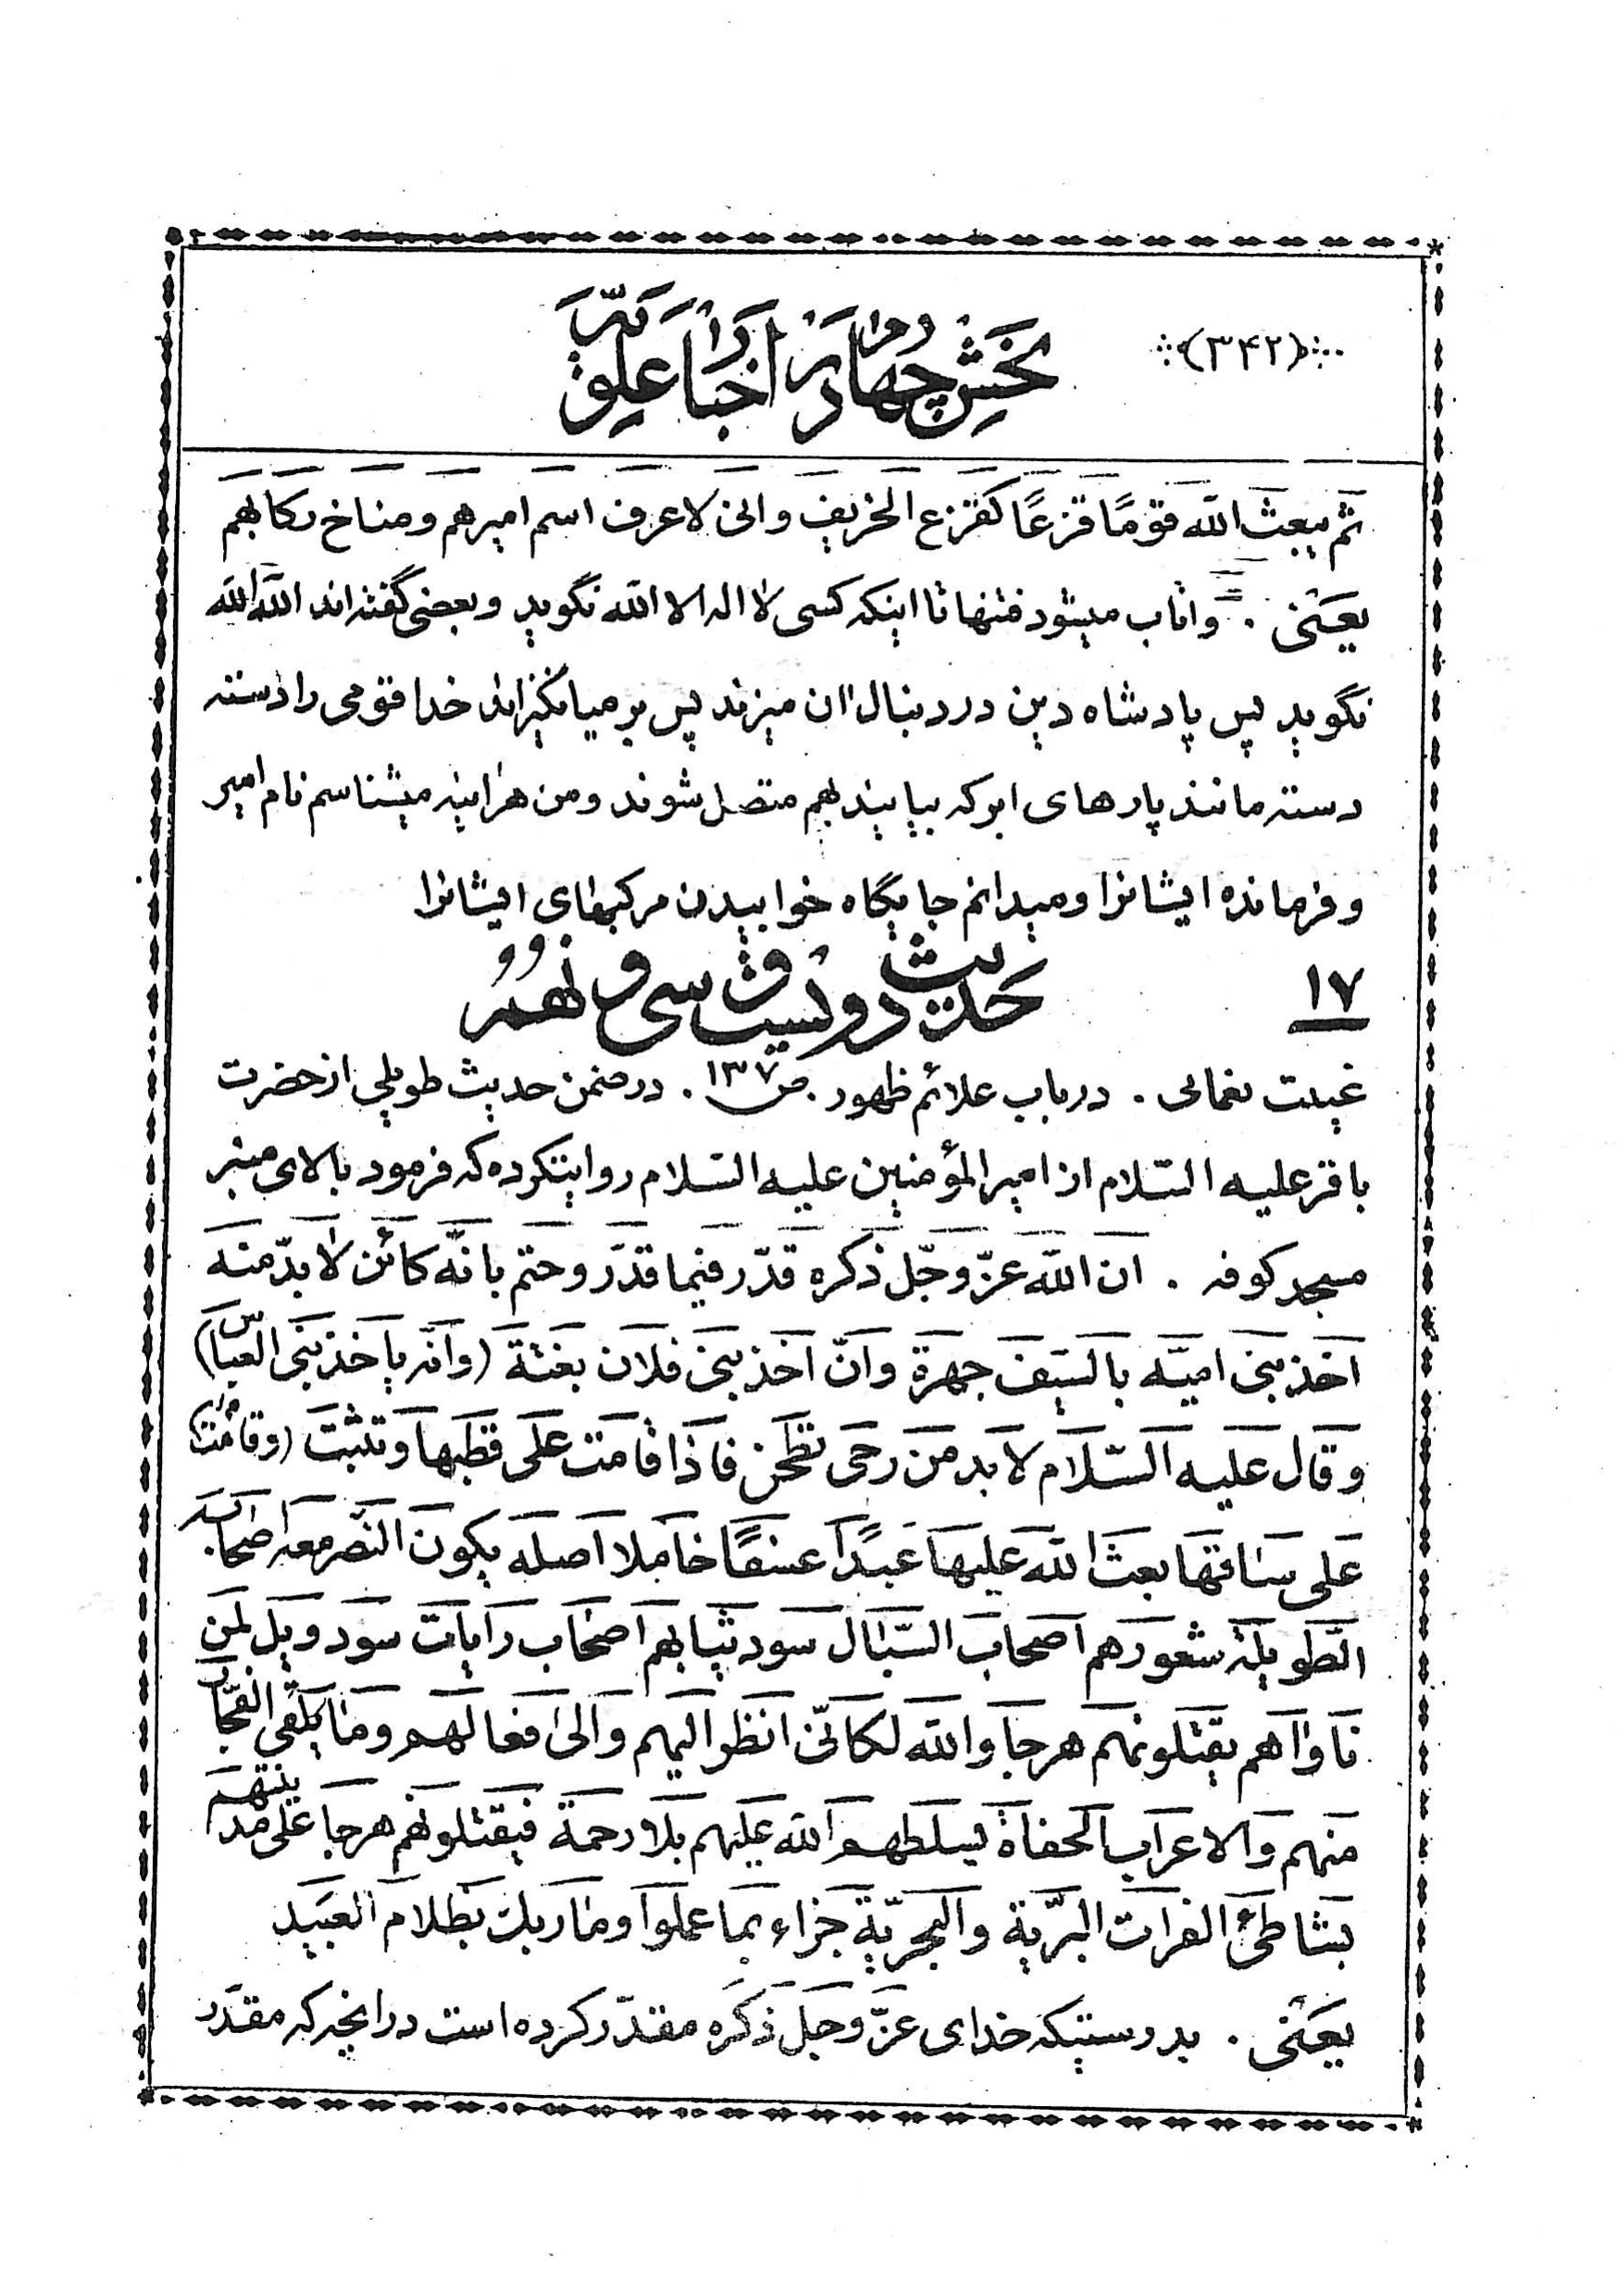 (۳۴۲)
بخش چهارم در اخبار علویه
ثم یبعث الله قومًا قزعًا کقزع الخریف وانی لاعرف اسم امیرهم ومناخ رکابهم
یعنی . وانّاب میشود فتنها تا اینکه کسی لا اله الا الله نگوید وبعضی گفته‌اند الله الله
نگوید پس پادشاه دین در دنبال ان میزند پس بر میانگیزاند خدا قومی را دسته
دسته مانند پارهای ابر که بیایند بهم متصل شوند ومن هراینه میشناسم نام امیر
وفرمانده ایشانرا ومیدانم جایگاه خوابیدن مرکبهای ایشانرا
۱۷ حدیث دویست و سی و نهم
غیبت نعمانی . در باب علائم ظهور . ص ۱۳۷ . در ضمن حدیث طویلی از حضرت
باقر علیه السّلام از امیر المؤمنین علیه السّلام روایتکرده که فرمود بالای منبر
مسجد کوفه . ان الله عزّ وجّل ذکره قدّر فیما قدّر وحتم بانّه کائن لا بدّ منه
اخذ بنی امیّه بالسّیف جهرة وانّ اخذ بنی فلان بغتة (وانّه یاخذ بنی العباس)
وقال علیه السّلام لابد من رحی تطحن فاذا قامت علی قطبها وتثبت (وقامت)
علی ساقها بعث الله علیها عبدًا عسفًا خاملا اصله یکون النّصر معه اصحابه
الطّویلة شعورهم اصحاب السّبال سود ثیابهم اصحاب رایات سود ویل لمن
ناواهم یقتلونهم هرجا والله لکانّی انظر الیهم والی فعالهم وما یلقی الفجّار
منهم والاعراب الجفاة یسلطهم الله علیهم بلا رحمة فیقتلونهم هرجا علی مدینتهم
بشاطئ الفرات البرّیة والبحریّة جزاء بما عملوا وما ربک بظلام العبید
یعنی . بدرستیکه خدای عزّ وجلّ ذکره مقدّر کرده است در انچه که مقدّر